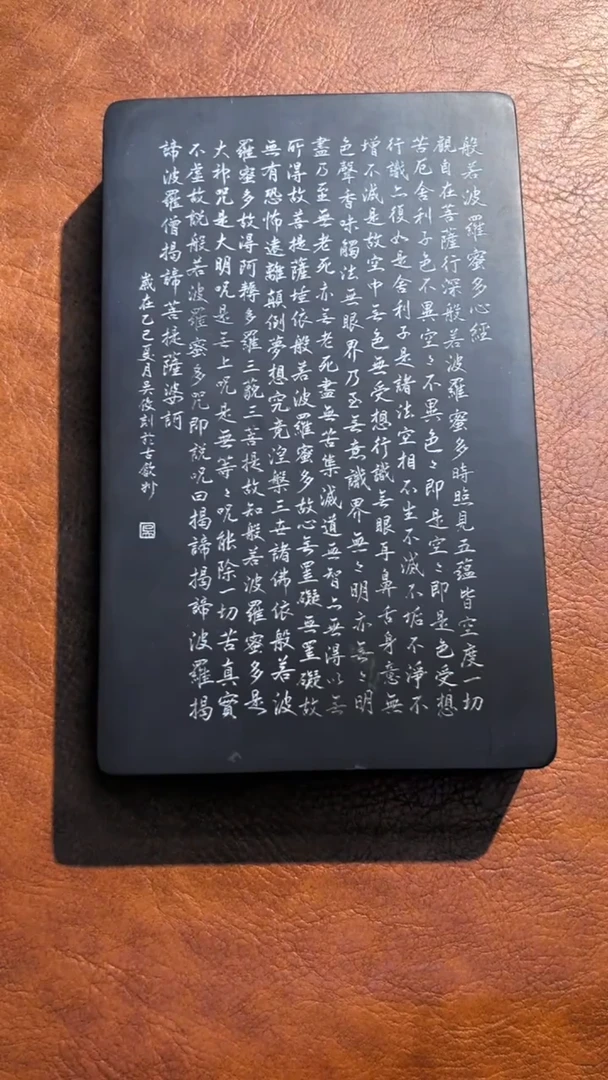 般若波羅蜜多心經
觀自在菩薩行深般若波羅蜜多時照見五蘊皆空度一切
苦厄舍利子色不異空々不異色々即是空々即是色受想
行識亦復如是舍利子是諸法空相不生不滅不垢不淨不
增不減是故空中无色無受想行識无眼耳鼻舌身意無
色聲香味觸法無眼界乃至无意識界無々明亦无々明
盡乃至無老死亦无老死盡無苦集滅道無智亦無得以无
所得故菩提薩埵依般若波羅蜜多故心无罣礙無罣礙故
無有恐怖遠離顛倒夢想究竟涅槃三世諸佛依般若波
羅蜜多故得阿耨多羅三藐三菩提故知般若波羅蜜多是
大神咒是大明呪是无上呪是無等々呪能除一切苦真實
不虛故說般若波羅蜜多咒即說呪曰揭諦揭諦波羅揭
諦波羅僧揭諦菩提薩婆訶
歲在乙巳夏月吳俊刻於古歙州